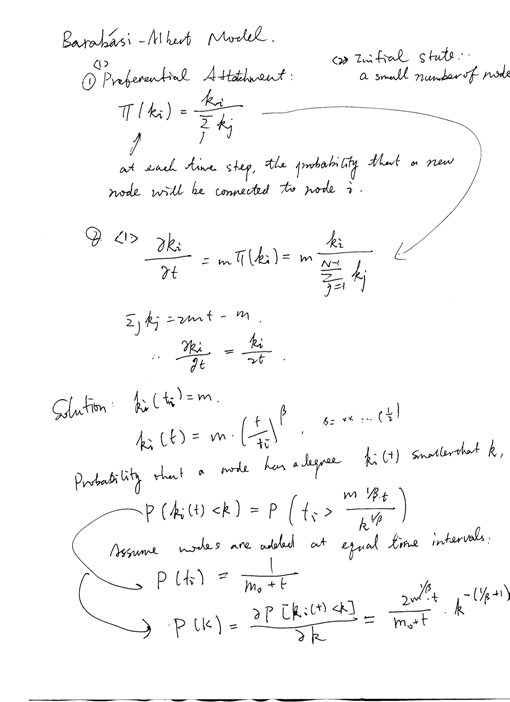 Barabási-Albert Model.
<1>
① Preferential Attatchment:
<2> Initial state:
a small number of node
Π(ki) = ki / Σj kj
at each time step, the probability that a new
node will be connected to node i.
② <1> ∂ki/∂t = mΠ(ki) = m ki / Σ_{j=1}^{N-1} kj
Σj kj = 2mt - m.
∴ ∂ki/∂t = ki/2t.
Solution: ki(ti) = m.
ki(t) = m·(t/ti)^β,
Probability that a node has a degree ki(t) smaller that k,
P(ki(t)<k) = P(ti > m^{1/β}·t / k^{1/β})
Assume nodes are added at equal time intervals.
P(ti) = 1 / m₀+t
P(k) = ∂P[ki(t)<k] / ∂k = 2m^{1/β}·t / m₀+t · k^{-(1/β+1)}